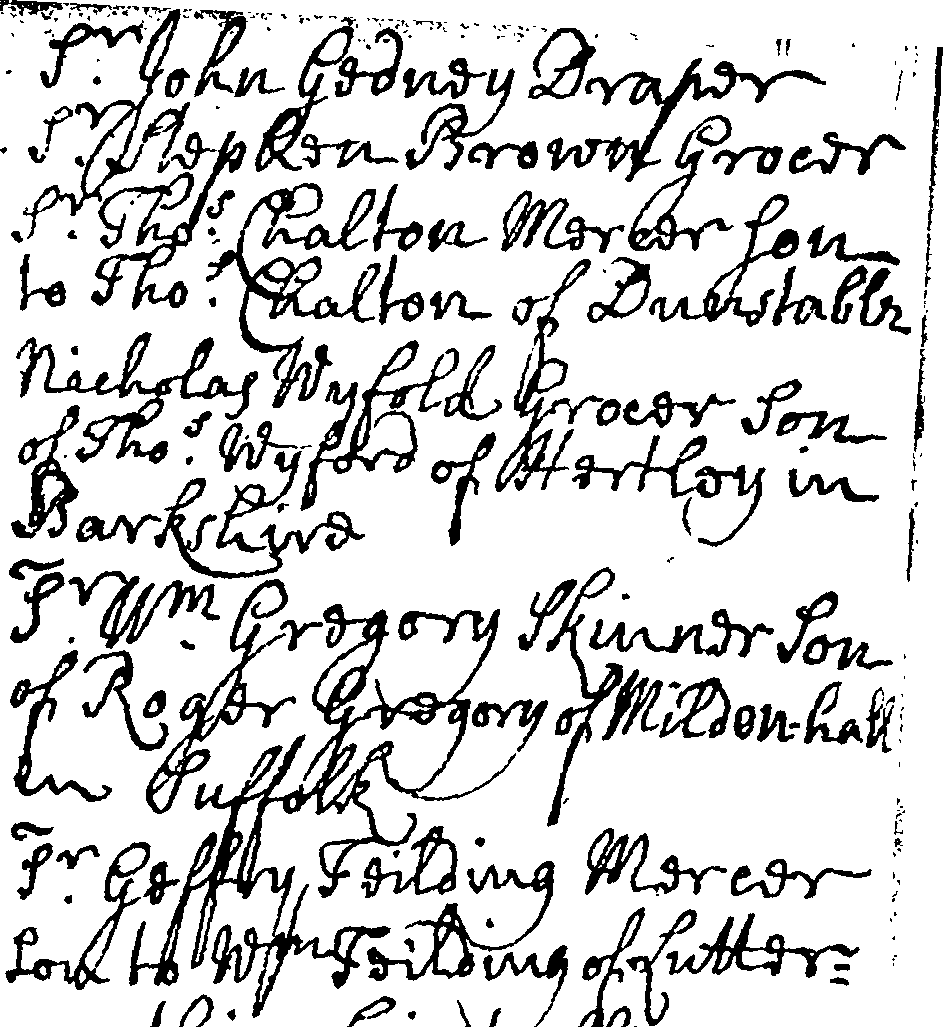 Sr. John Gedney Draper
Sr. Stephen Brown Grocer
Sr. Thos. Chalton Mercer Son
to Thos. Chalton of Dunstable
Nicholas Wyfold Grocer Son
of Thos. Wyford of Hertley in
Barkshire
Sr. Wm. Gregory Skinner Son
of Roger Gregory of Mildon-hall
in Suffolk
Sr. Geffry Feilding Mercer
Son to Wm Feilding of Lutter=